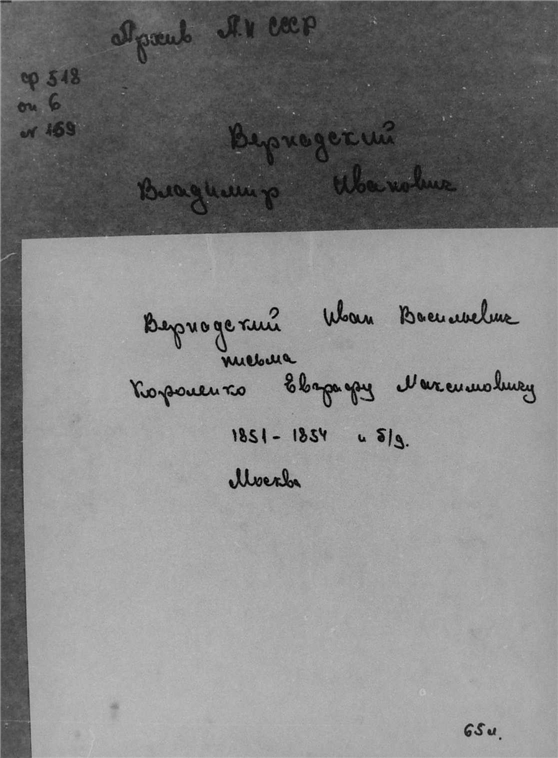 Архив А.Н СССР
ф 518
оп. 6
№ 159
Вернадский
Владимир Иванович
Вернадский Иван Васильевич
письма
Короленко Евграфу Максимовичу
1851-1854 и б/д.
Москва
65 л.